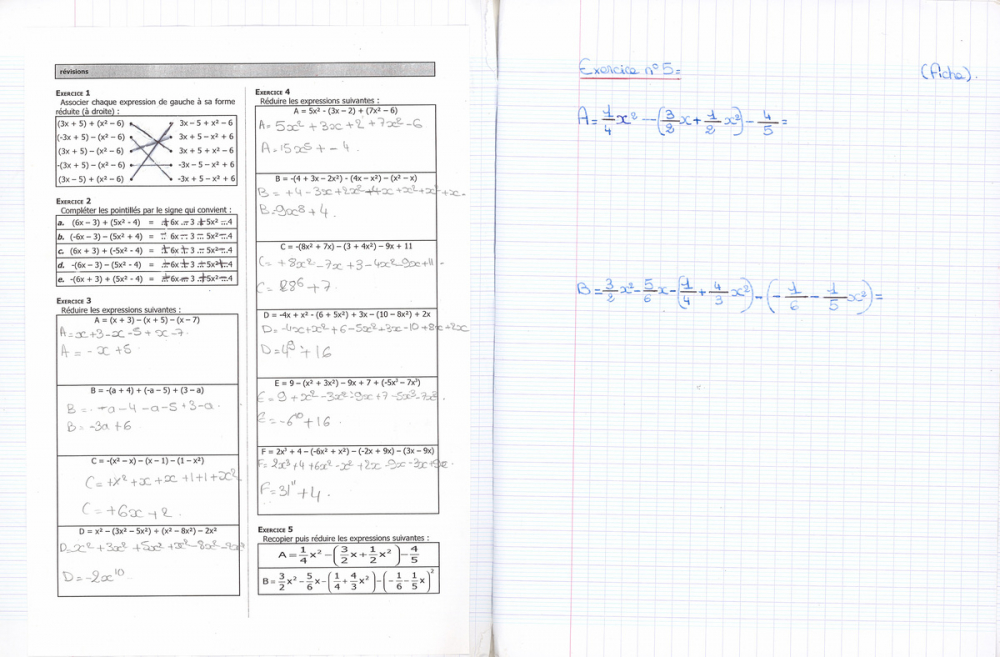 révisions
EXERCICE 1
Associer chaque expression de gauche à sa forme
réduite (à droite) :
(3x + 5) + (x² – 6) 3x – 5 + x² – 6
(-3x + 5) – (x² – 6) 3x + 5 – x² + 6
(3x + 5) – (x² – 6) 3x + 5 + x² – 6
-(3x + 5) – (x² – 6) -3x – 5 – x² + 6
(3x – 5) + (x² – 6) -3x + 5 – x² + 6
EXERCICE 2
Compléter les pointillés par le signe qui convient :
a. (6x – 3) + (5x² - 4) =
b. (-6x – 3) – (5x² + 4) =
c. (6x + 3) + (-5x² - 4) =
d. -(6x – 3) – (5x² - 4) =
e. -(6x + 3) + (5x² - 4) =
EXERCICE 3
Réduire les expressions suivantes :
A = (x + 3) – (x + 5) – (x – 7)
A = x + 3 - x - 5 + x - 7
A = - x + 5
B = -(a + 4) + (-a – 5) + (3 – a)
B = - a - 4 - a - 5 + 3 - a
B = -3a + 6
C = -(x² – x) – (x – 1) – (1 – x²)
C = +x² + x + x + 1 + 1 + x²
C = +6x + 2
D = x² – (3x² – 5x²) + (x² – 8x²) – 2x²
D = x² + 3x² + 5x² + x² - 8x² - 2x²
D = -2x¹⁰
EXERCICE 4
Réduire les expressions suivantes :
A = 5x² - (3x – 2) + (7x² – 6)
A = 5x² + 3x + 2 + 7x² - 6
A = 15x⁵ + - 4
B = -(4 + 3x – 2x²) - (4x – x²) – (x² – x)
B = + 4 - 3x + 2x² - 4x + x² + x² + x
B = 9x⁸ + 4
C = -(8x² + 7x) – (3 + 4x²) – 9x + 11
C = + 8x² - 7x + 3 - 4x² - 9x + 11
C = 28⁶ + 7
D = -4x + x² - (6 + 5x²) + 3x – (10 – 8x²) + 2x
D = -4x + x² + 6 - 5x² + 3x - 10 + 8x + 2x
D = 4⁹ + 16
E = 9 – (x² + 3x²) – 9x + 7 + (-5x³ – 7x³)
E = 9 + x² - 3x² - 9x + 7 - 5x³ - 7x³
E = -6¹⁰ + 16
F = 2x³ + 4 – (-6x² + x²) – (-2x + 9x) – (3x – 9x)
F = 2x³ + 4 + 6x² - x² + 2x - 9x - 3x + 9x
F = 31¹¹ + 4
EXERCICE 5
Recopier puis réduire les expressions suivantes :
A = 1/4 x² – (3/2 x + 1/2 x²) – 4/5
B = 3/2 x² – 5/6 x – (1/4 + 4/3 x²) – (– 1/6 – 1/5 x)²
Exercice n°5 = (Fiche).
A = 1/4 x² - (3/2 x + 1/2 x²) - 4/5 =
B = 3/2 x² - 5/6 x - (1/4 + 4/3 x²) - (- 1/6 - 1/5 x²) =